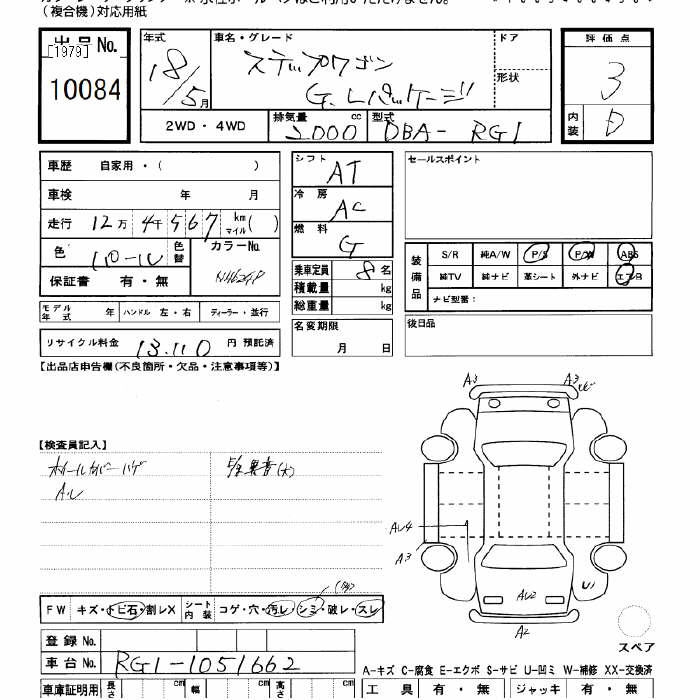 （複合機）対応用紙
出品No.
[1979]
10084
年式
18/5月
車名・グレード
ステップワゴン
G.Lパッケージ
ドア
形状
評価点
3
内装
D
2WD・4WD
排気量 cc
2000
型式
DBA-RG1
車歴 自家用・( )
車検 年 月
走行 12万 4千 5 6 7 km マイル ( )
色
色替
カラーNo.
保証書 有・無
シフト
AT
冷房
AC
燃料
G
乗車定員 8 名
積載量 kg
総重量 kg
セールスポイント
装備品
S/R 純A/W P/S P/W ABS
純TV 純ナビ 革シート 外ナビ エアB
ナビ型番：
モデル年式 年 ハンドル 左・右 ディーラー・並行
リサイクル料金 13.110 円 預託済
名変期限
月 日
後日品
【出品店申告欄(不良箇所・欠品・注意事項等)】
【検査員記入】
ホイールカバーハゲ
A.U
異音(大)
A3
A3
AU4
A3
AU2
U1
A2
FW キズ・トビ石・割レX シート内装 コゲ・穴・汚レ・シミ・破レ・スレ
登録No.
車台No. RG1-1051662
スペア
A-キズ C-腐食 E-エクボ S-サビ U-凹ミ W-補修 XX-交換済
車庫証明用 長さ cm 幅 cm 高さ cm
工具 有・無 ジャッキ 有・無